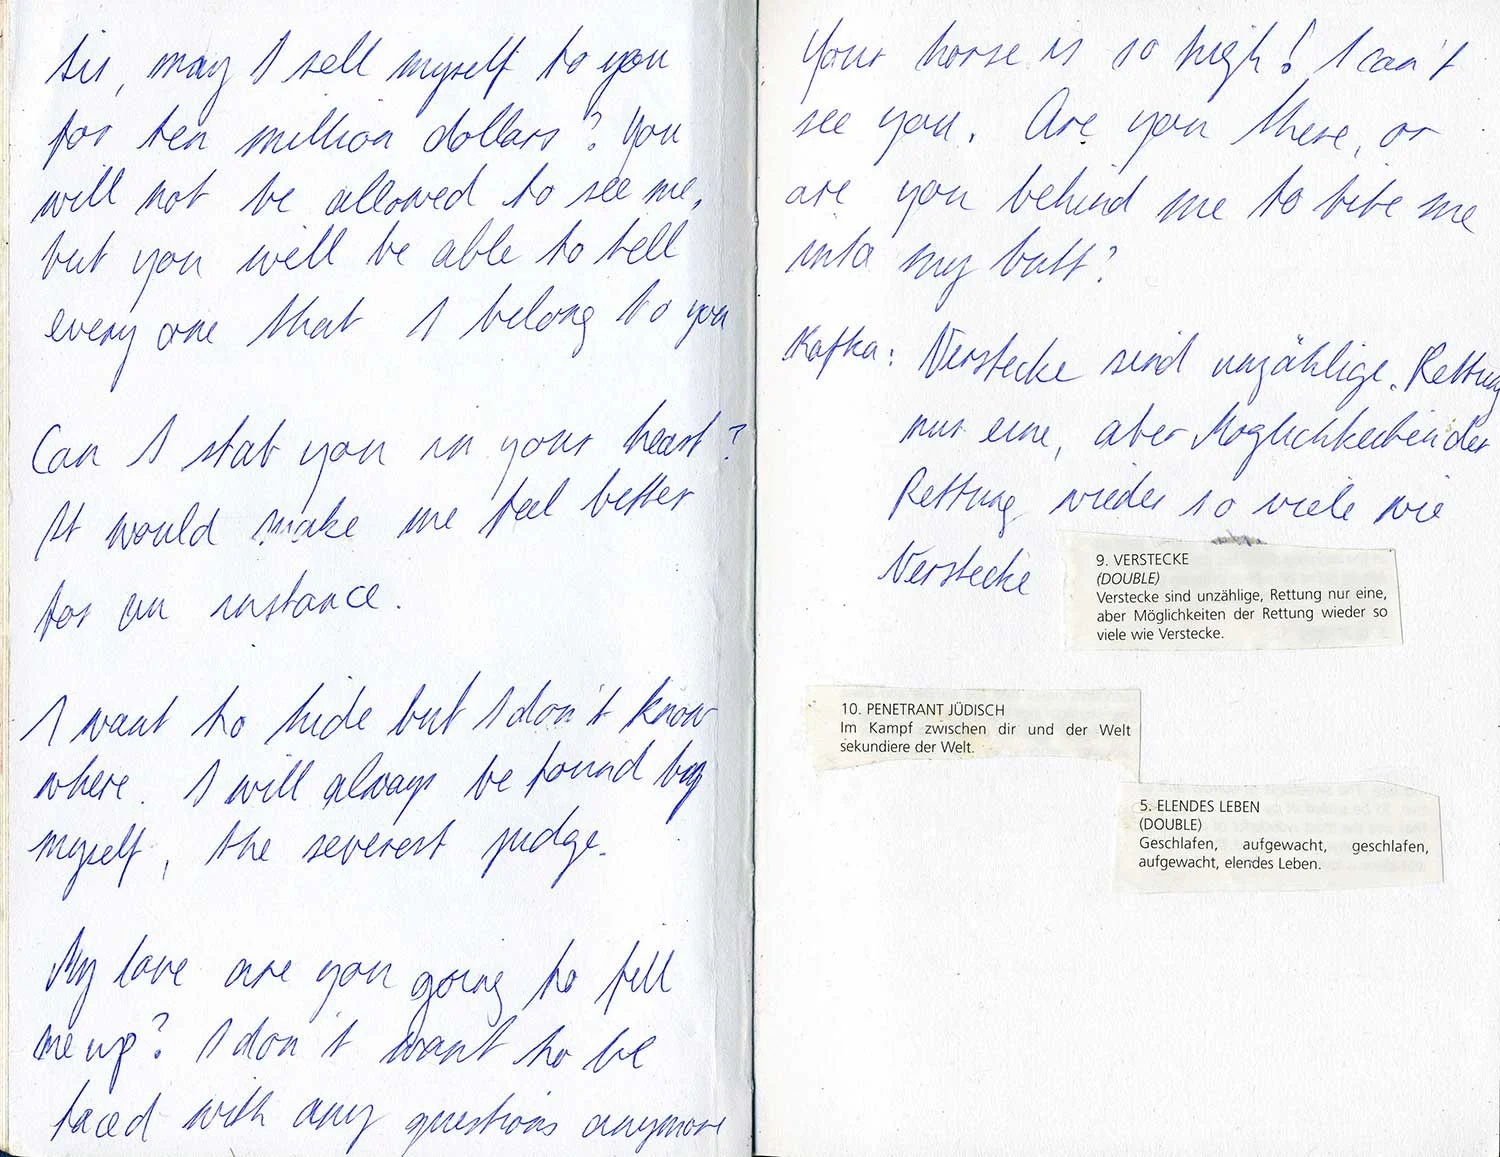 Sir, may I sell myself to you
for ten million dollars? You
will not be allowed to see me,
but you will be able to tell
every one that I belong to you
Can I stab you in your heart?
It would make me feel better
for an instance.
I want to hide but I don't know
where. I will always be found by
myself, the severest judge.
My love are you going to fill
me up? I don't want to be
faced with any questions anymore
Your horse is so high! I can't
see you. Are you there, or
are you behind me to bite me
into my butt?
Kafka: Verstecke sind unzählige. Rettung
nur eine, aber Moglichkeiten der
Rettung wieder so viele wie
Verstecke
9. VERSTECKE
(DOUBLE)
Verstecke sind unzählige, Rettung nur eine,
aber Möglichkeiten der Rettung wieder so
viele wie Verstecke.
10. PENETRANT JÜDISCH
Im Kampf zwischen dir und der Welt
sekundiere der Welt.
5. ELENDES LEBEN
(DOUBLE)
Geschlafen, aufgewacht, geschlafen,
aufgewacht, elendes Leben.